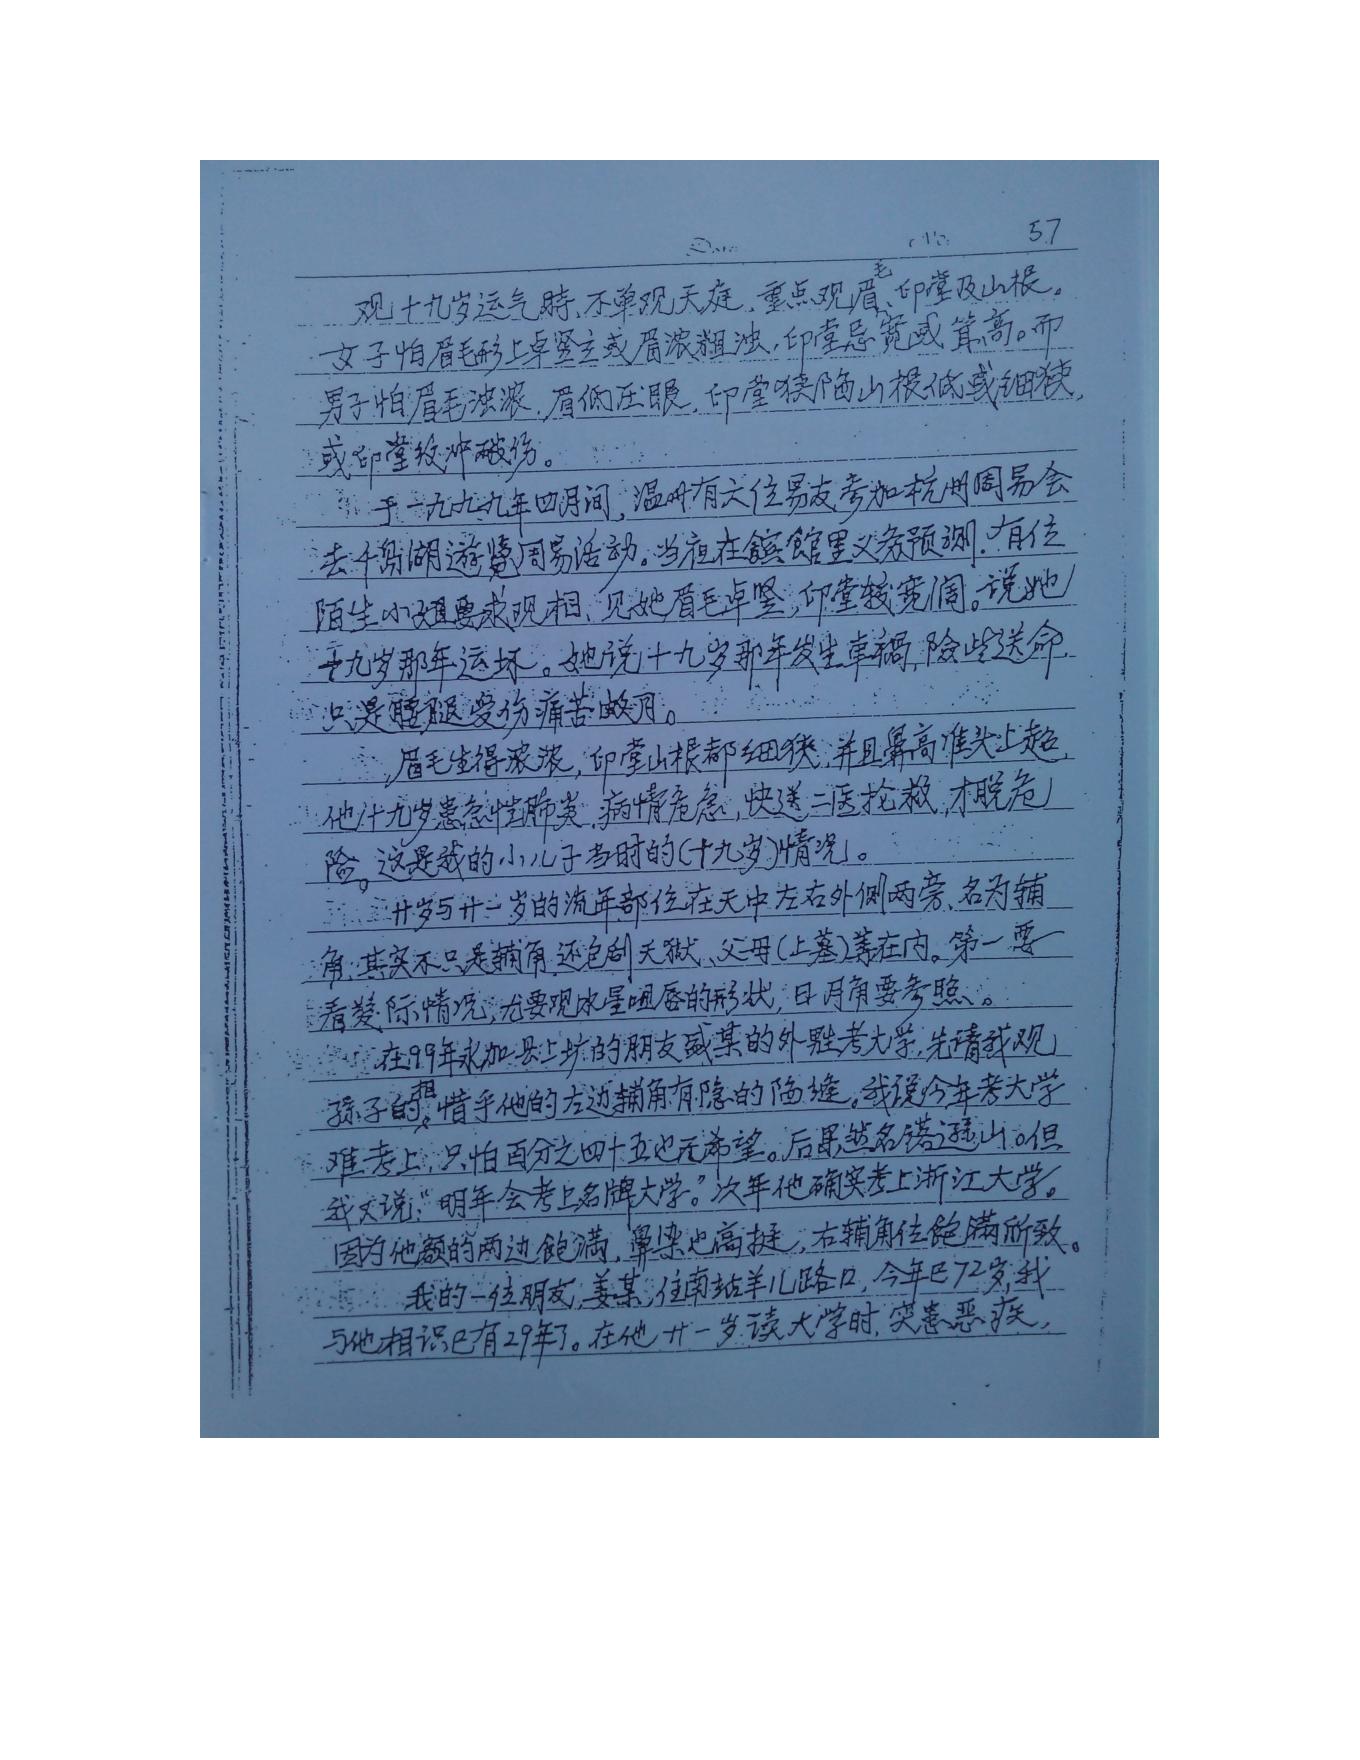 57
观十九岁运气時、不单观天庭、重点观眉毛、印堂及山根。
女子怕眉毛形上卓竖立或眉浓粗浊，印堂忌宽或耸高。而
男子怕眉毛浊浓、眉低压眼、印堂狭陷山根低或细狭，
或印堂纹冲破伤。
于一九九九年四月间，温州有六位易友参加杭州周易会
去千岛湖遊覽周易活动。当夜在賓館里义务预测. 有位
陌生小姐要求观相、见她眉毛卓竖，印堂较宽阔。说她
十九岁那年运坏。她说十九岁那年发生車禍，险些送命，
只是腰腿受伤痛苦数月。
眉毛生得浓浓，印堂山根都细狭，并且鼻高准头上起，
他十九岁患急性肺炎，病情危急，快送二医抢救，才脱危
险。这是我的小儿子当时的(十九岁)情况。
廿岁与廿一岁的流年部位在天中左右外侧两旁、名为辅
角、其实不只是辅角，还包刮天狱、父母(上墓)等在内。第一要
看髮际情况，尤要观水星咀唇的形状，日月角要参照。
在99年永加县上坊的朋友戚某的外甥考大学，先请我观
孫子的相，惜乎他的左边辅角有隐的陷缝。我役今年考大学
难考上，只怕百分之四十五也无希望。后果然名落逊山。但
我又说：“明年会考上名牌大学。”次年他确实考上浙江大学。
因为他额的两边饱满，鼻梁也高挺，右辅角位饱满所致。
我的一位朋友，姜某，住南站羊儿路口，今年已72岁，我
与他相识已有29年了。在他廿一岁读大学时，突患恶疾，